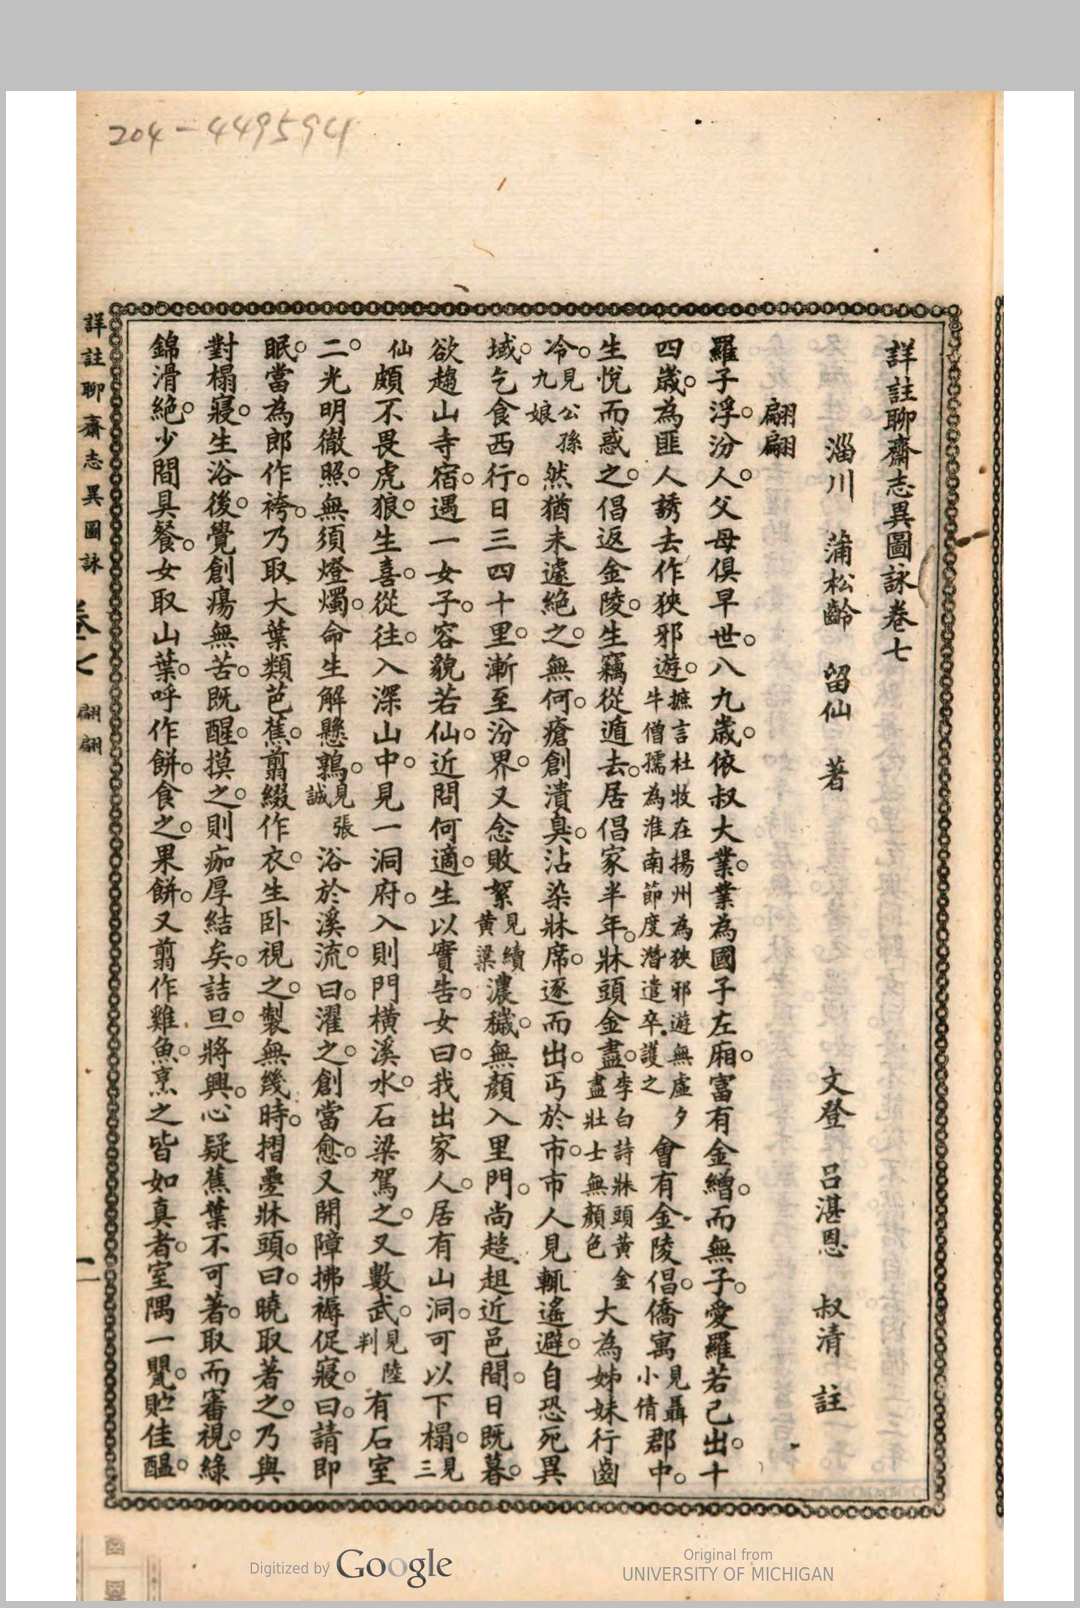 204-449594
詳註聊齋志異圖詠卷七
淄川　蒲松齡　留仙　著　文登　呂湛恩　叔清　註
翩翩
羅子浮。汾人。父母俱早世。八九歲。依叔大業。業為國子左廂。富有金繒。而無子。愛羅若己出。十
四歲。為匪人誘去作狹邪遊。摭言杜牧在揚州為狹邪遊無虛夕牛僧孺為淮南節度潛遣卒護之會有金陵倡。僑寓見聶小倩郡中。
生悅而惑之。倡返金陵。生竊從遁去。居倡家半年。牀頭金盡。李白詩牀頭黃金盡壯士無顏色大為姊妹行齒
冷。見公孫九娘然猶未遽絕之。無何。瘡創潰臭。沾染牀席。逐而出。丐於市。市人見輒遙避。自恐死異
域。乞食西行。日三四十里。漸至汾界。又念敗絮見續黃粱濃穢。無顏入里門。尚趦趄近邑間。日既暮。
欲趨山寺宿。遇一女子。容貌若仙。近問何適。生以實告。女曰。我出家人。居有山洞。可以下榻。見三
仙頗不畏虎狼。生喜。從往。入深山中。見一洞府。入則門橫溪水。石梁駕之。又數武。見陸判有石室
二。光明徹照。無須燈燭。命生解懸鶉。見張誠浴於溪流。曰。濯之。創當愈。又開幛拂褥促寢。曰。請即
眠。當為郎作袴。乃取大葉類芭蕉。翦綴作衣。生臥視之。製無幾時。摺疊牀頭。曰。曉取著之。乃與
對榻寢。生浴後。覺創瘍無苦。既醒。摸之。則痂厚結矣。詰旦。將興。心疑蕉葉不可著。取而審視。綠
錦滑絕。少間具餐。女取山葉。呼作餅。食之。果餅。又翦作雞魚。烹之皆如真者。室隅一甖。貯佳醞
詳註聊齋志異圖詠　卷七　翩翩　一
Digitized by Google
Original from
UNIVERSITY OF MICHIGAN